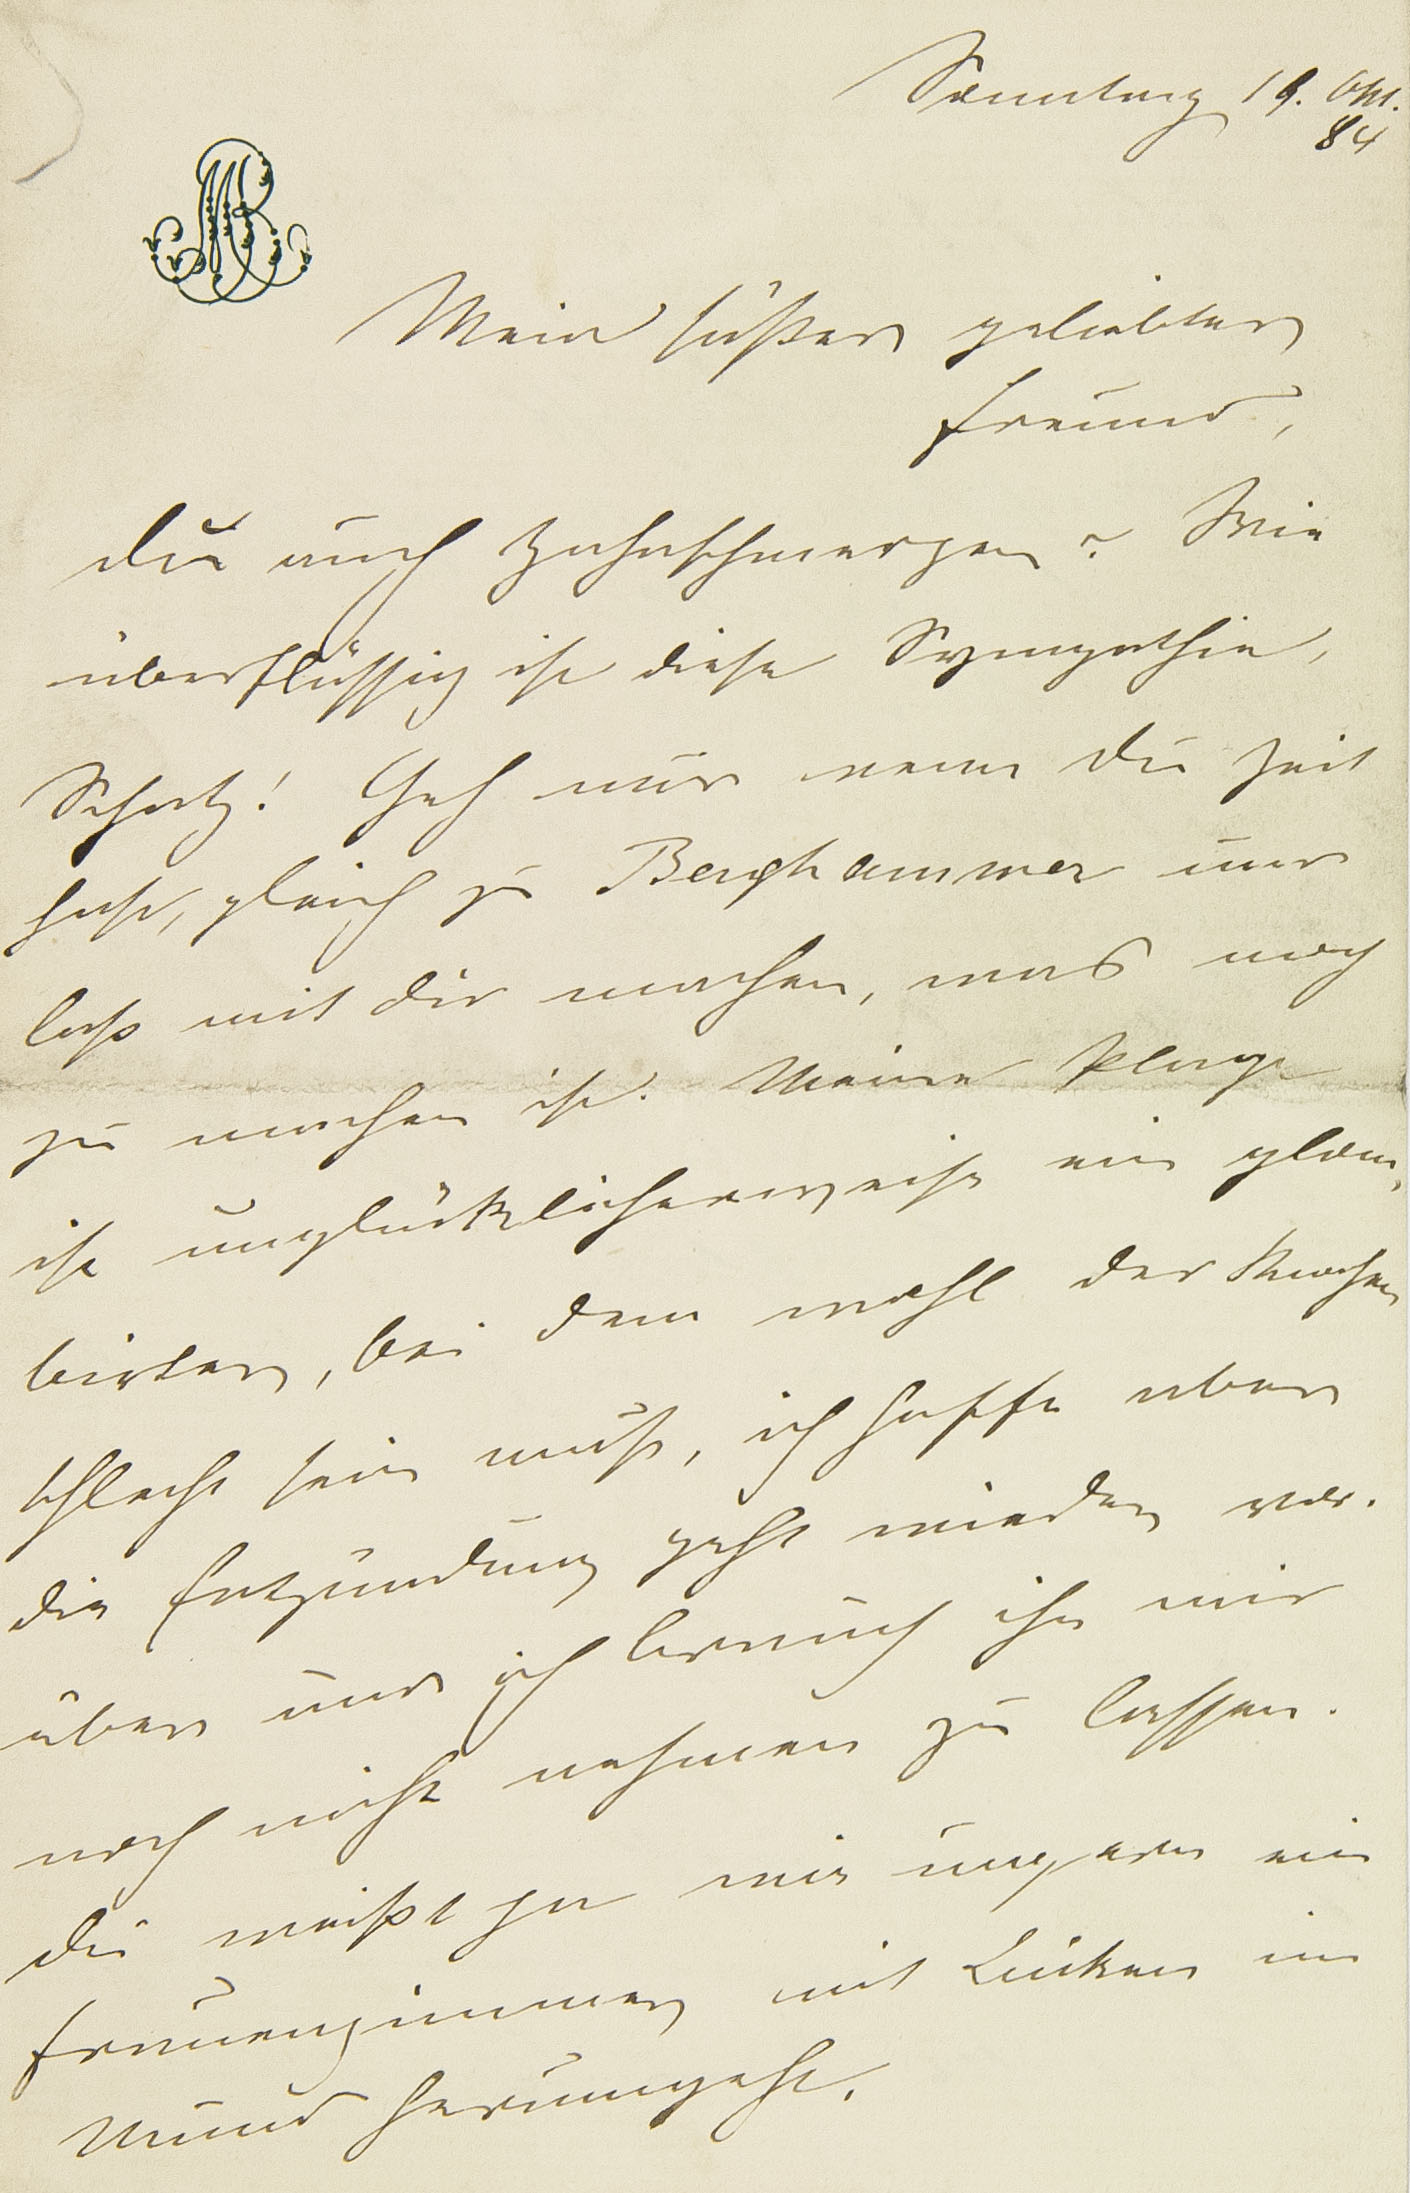 Sonntag 19. Okt.
84
MB
Mein süßer geliebter
Freund,
Du auch Zahnschmerzen? Wie
überflüssig ist diese Sympathie,
Schatz! Geh nur wenn Du Zeit
hast, gleich zu Berghammer und
laß mit Dir machen, was noch
zu machen ist. Meine Plage
ist unglücklicherweise ein plom-
birter, bei dem wohl der Knochen
schlecht sein muß, ich hoffe aber
die Entzündung geht wieder vor-
über und ich brauch ihn mir
noch nicht nehmen zu lassen.
Du weißt ja wie ungern ein
Frauenzimmer mit Lücken im
Mund herumgeht.